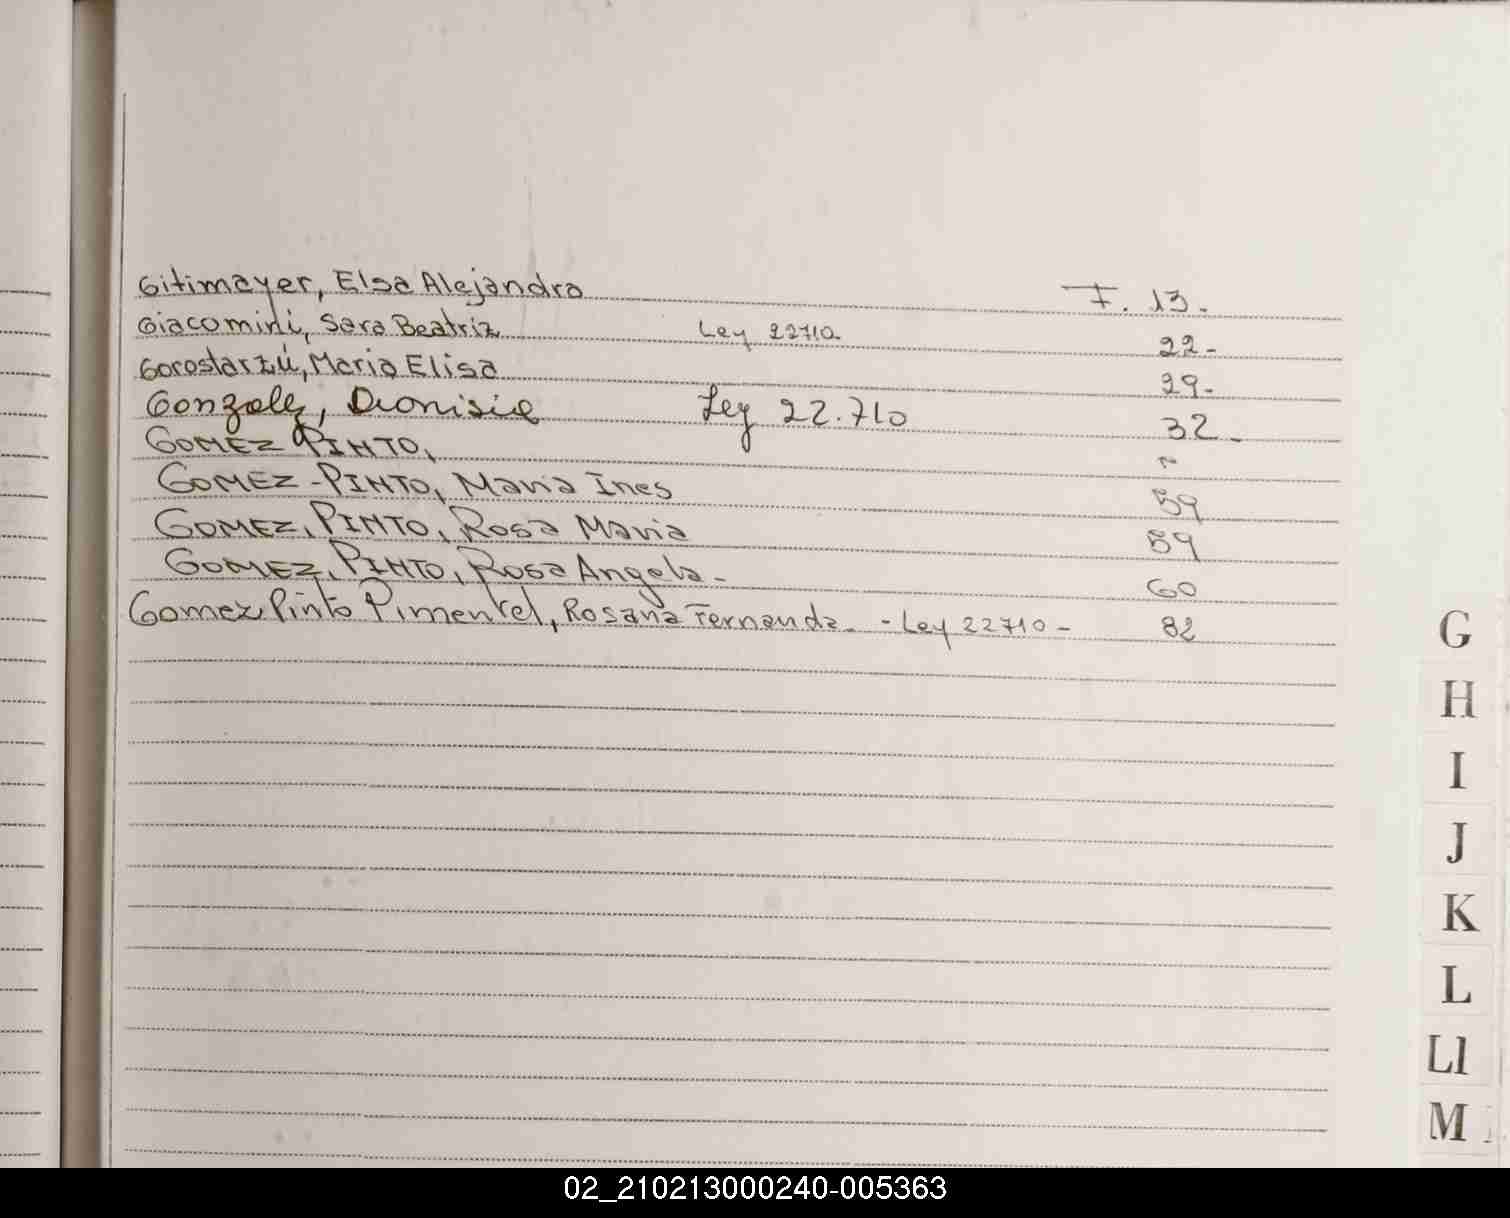 Gitimayer, Elsa Alejandra F. 13.-
Giacomini, Sara Beatriz Ley 22710 22-
Gorostarzú, Maria Elisa 29-
Gonzalez, Dionisia Ley 22.710 32-
GOMEZ PINTO,
GOMEZ-PINTO, Maria Ines 59
GOMEZ, PINTO, Rosa Maria 59
GOMEZ, PINTO, Rosa Angela- 60
Gomez Pinto Pimentel, Rosana Fernanda - Ley 22710 - 82
G
H
I
J
K
L
Ll
M
02_210213000240-005363